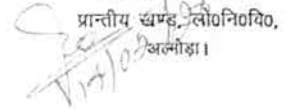 प्रान्तीय खण्ड, लो०नि०वि०,
अल्मोड़ा।